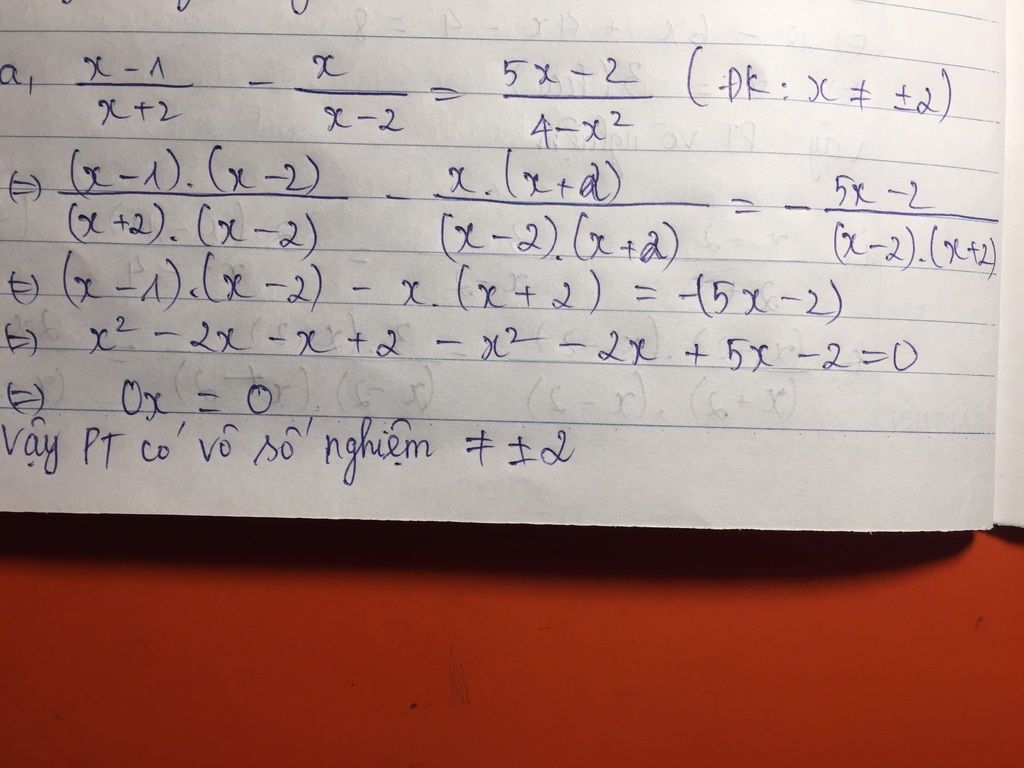 a, (x-1)/(x+2) - x/(x-2) = (5x-2)/(4-x²) (ĐK: x ≠ ±2)
⇔ ((x-1).(x-2))/((x+2).(x-2)) - (x.(x+2))/((x-2).(x+2)) = - (5x-2)/((x-2).(x+2))
⇔ (x-1).(x-2) - x.(x+2) = -(5x-2)
⇔ x² - 2x - x + 2 - x² - 2x + 5x - 2 = 0
⇔ 0x = 0
Vậy PT có vô số nghiệm ≠ ±2